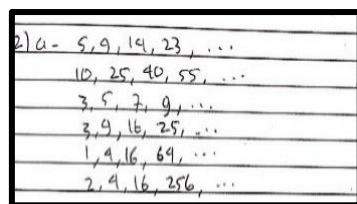 2) a - 5, 9, 14, 23, ...
10, 25, 40, 55, ...
3, 5, 7, 9, ...
3, 9, 16, 25, ...
1, 4, 16, 64, ...
2, 4, 16, 256, ...